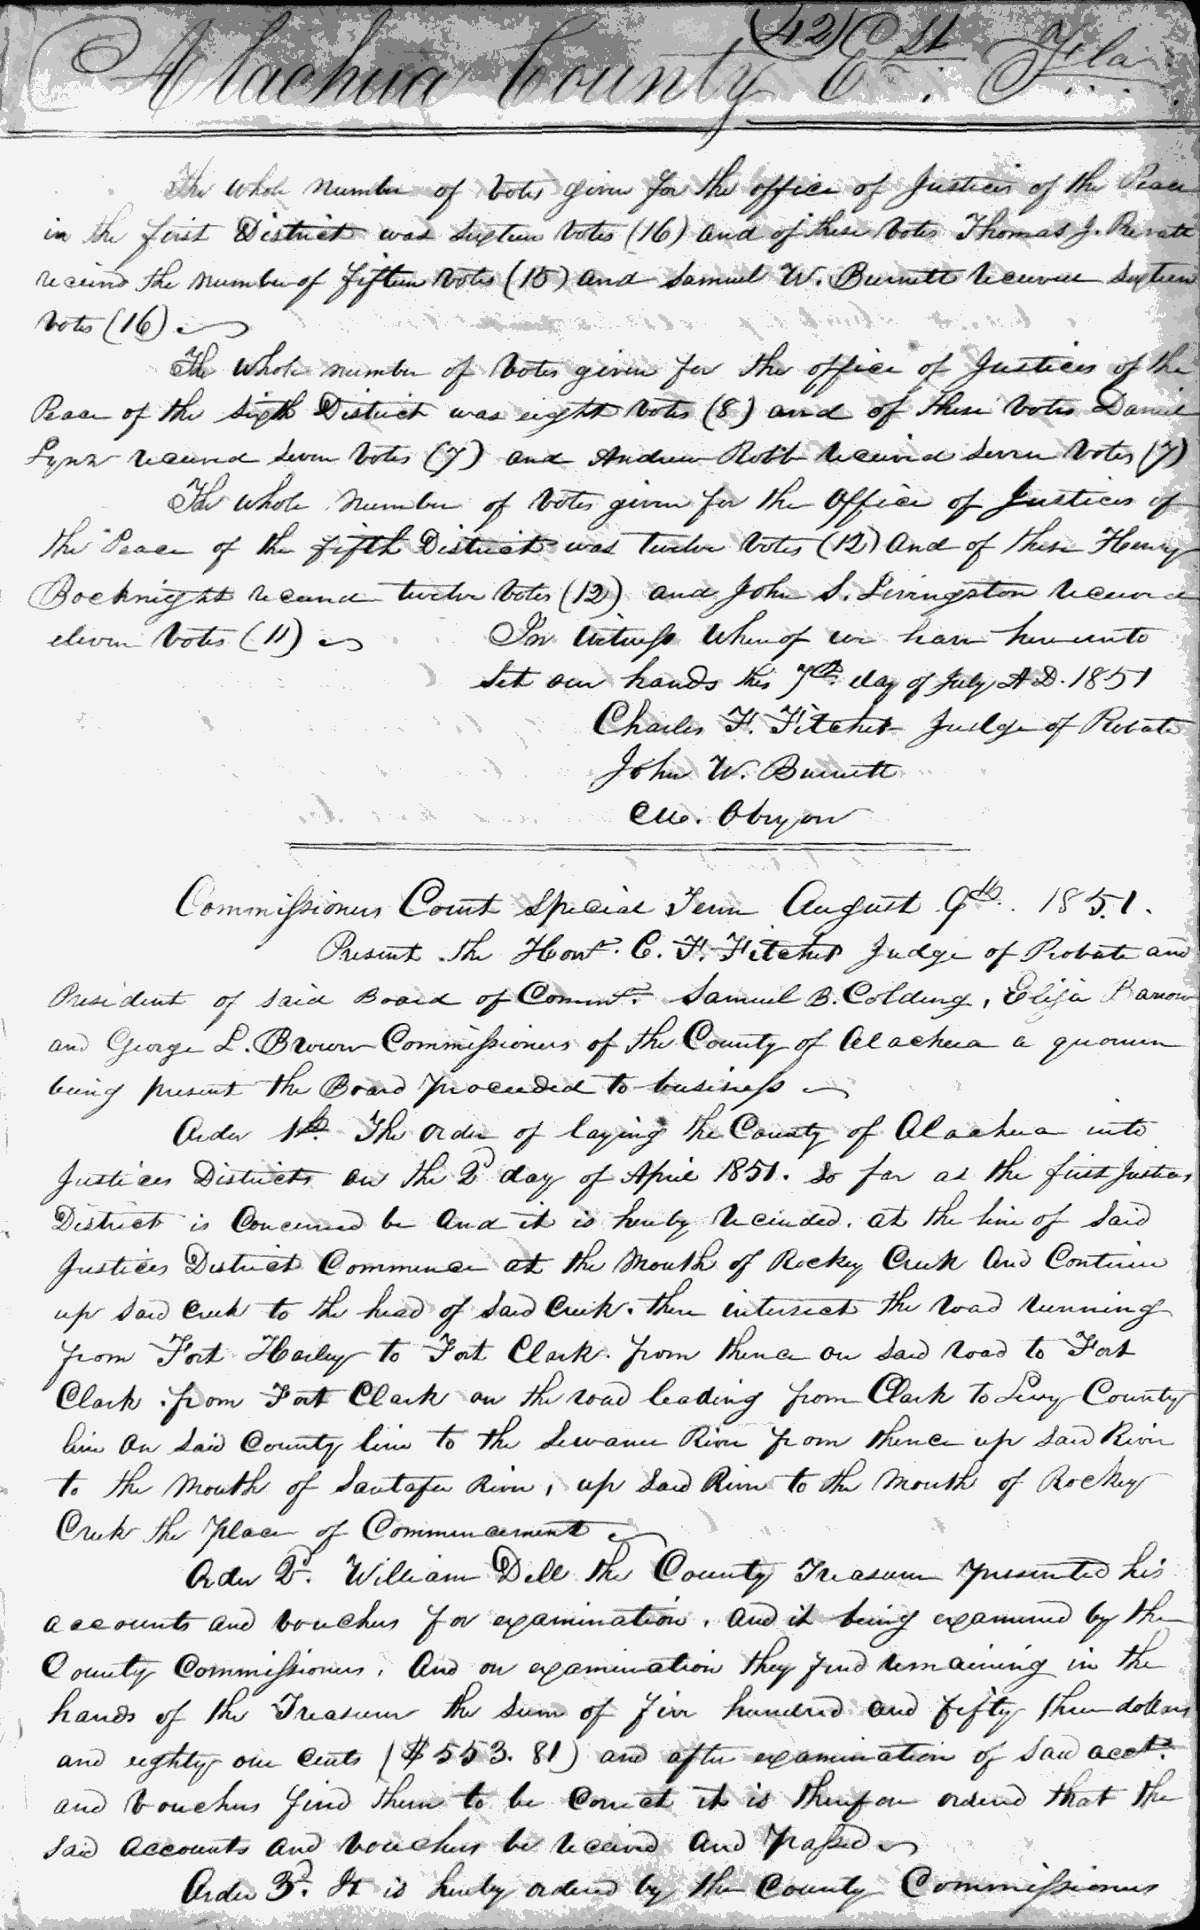 (42) Ct
Alachua County Ct. Fla.
The whole number of votes given for the office of Justices of the Peace
in the first District was sixteen votes (16) and of these votes Thomas J. Prevatt
received the number of fifteen votes (15) and Samuel W. Burnett received sixteen
votes (16)
The whole number of votes given for the office of Justices of the
Peace of the sixth District was eight votes (8) and of these votes Daniel
Lynn received seven votes (7) and Andrew Robb received seven votes (7)
The whole number of votes given for the office of Justices of
the Peace of the fifth District was twelve votes (12) and of these Henry
Bocknight received twelve votes (12) and John S. Livingston received
eleven votes (11)
In witness whereof we have hereunto
set our hands this 7th day of July A.D. 1851
Charles F. Fitchet Judge of Probate
John W. Burnett
Obryon
Commissioners Court Special Term August 9th. 1851.
Present the Honl. C. F. Fitchet Judge of Probate and
President of said Board of Commrs. Samuel B. Colding, Elija Barrow
and George L. Brown Commissioners of the County of Alachua a quorum
being present the Board proceeded to business
Order 1st. The order of laying the County of Alachua into
Justices Districts on the 2d day of April 1851. so far as the first Justices
District is Concerned be and it is hereby recinded. at the line of said
Justices District Commence at the mouth of Rockey Creek and Continue
up said creek to the head of said Creek. then intersect the road running
from Fort Harley to Fort Clark. from thence on said road to Fort
Clark. from Fort Clark on the road leading from Clark to Levy County
line on said County line to the Sewanee River from thence up said River
to the mouth of Santafee River, up said River to the mouth of Rockey
Creek the place of Commencement
Order 2d. William Dell the County Treasurer presented his
accounts and vouchers for examination. and it being examined by the
County Commissioners. And on examination they find remaining in the
hands of the Treasurer the sum of five hundred and fifty three dollars
and eighty one cents ($553.81) and after examination of said acct.
and vouchers find them to be correct it is therefore ordered that the
said accounts and vouchers be received and passed
Order 3d. It is hereby ordered by the County Commissioners